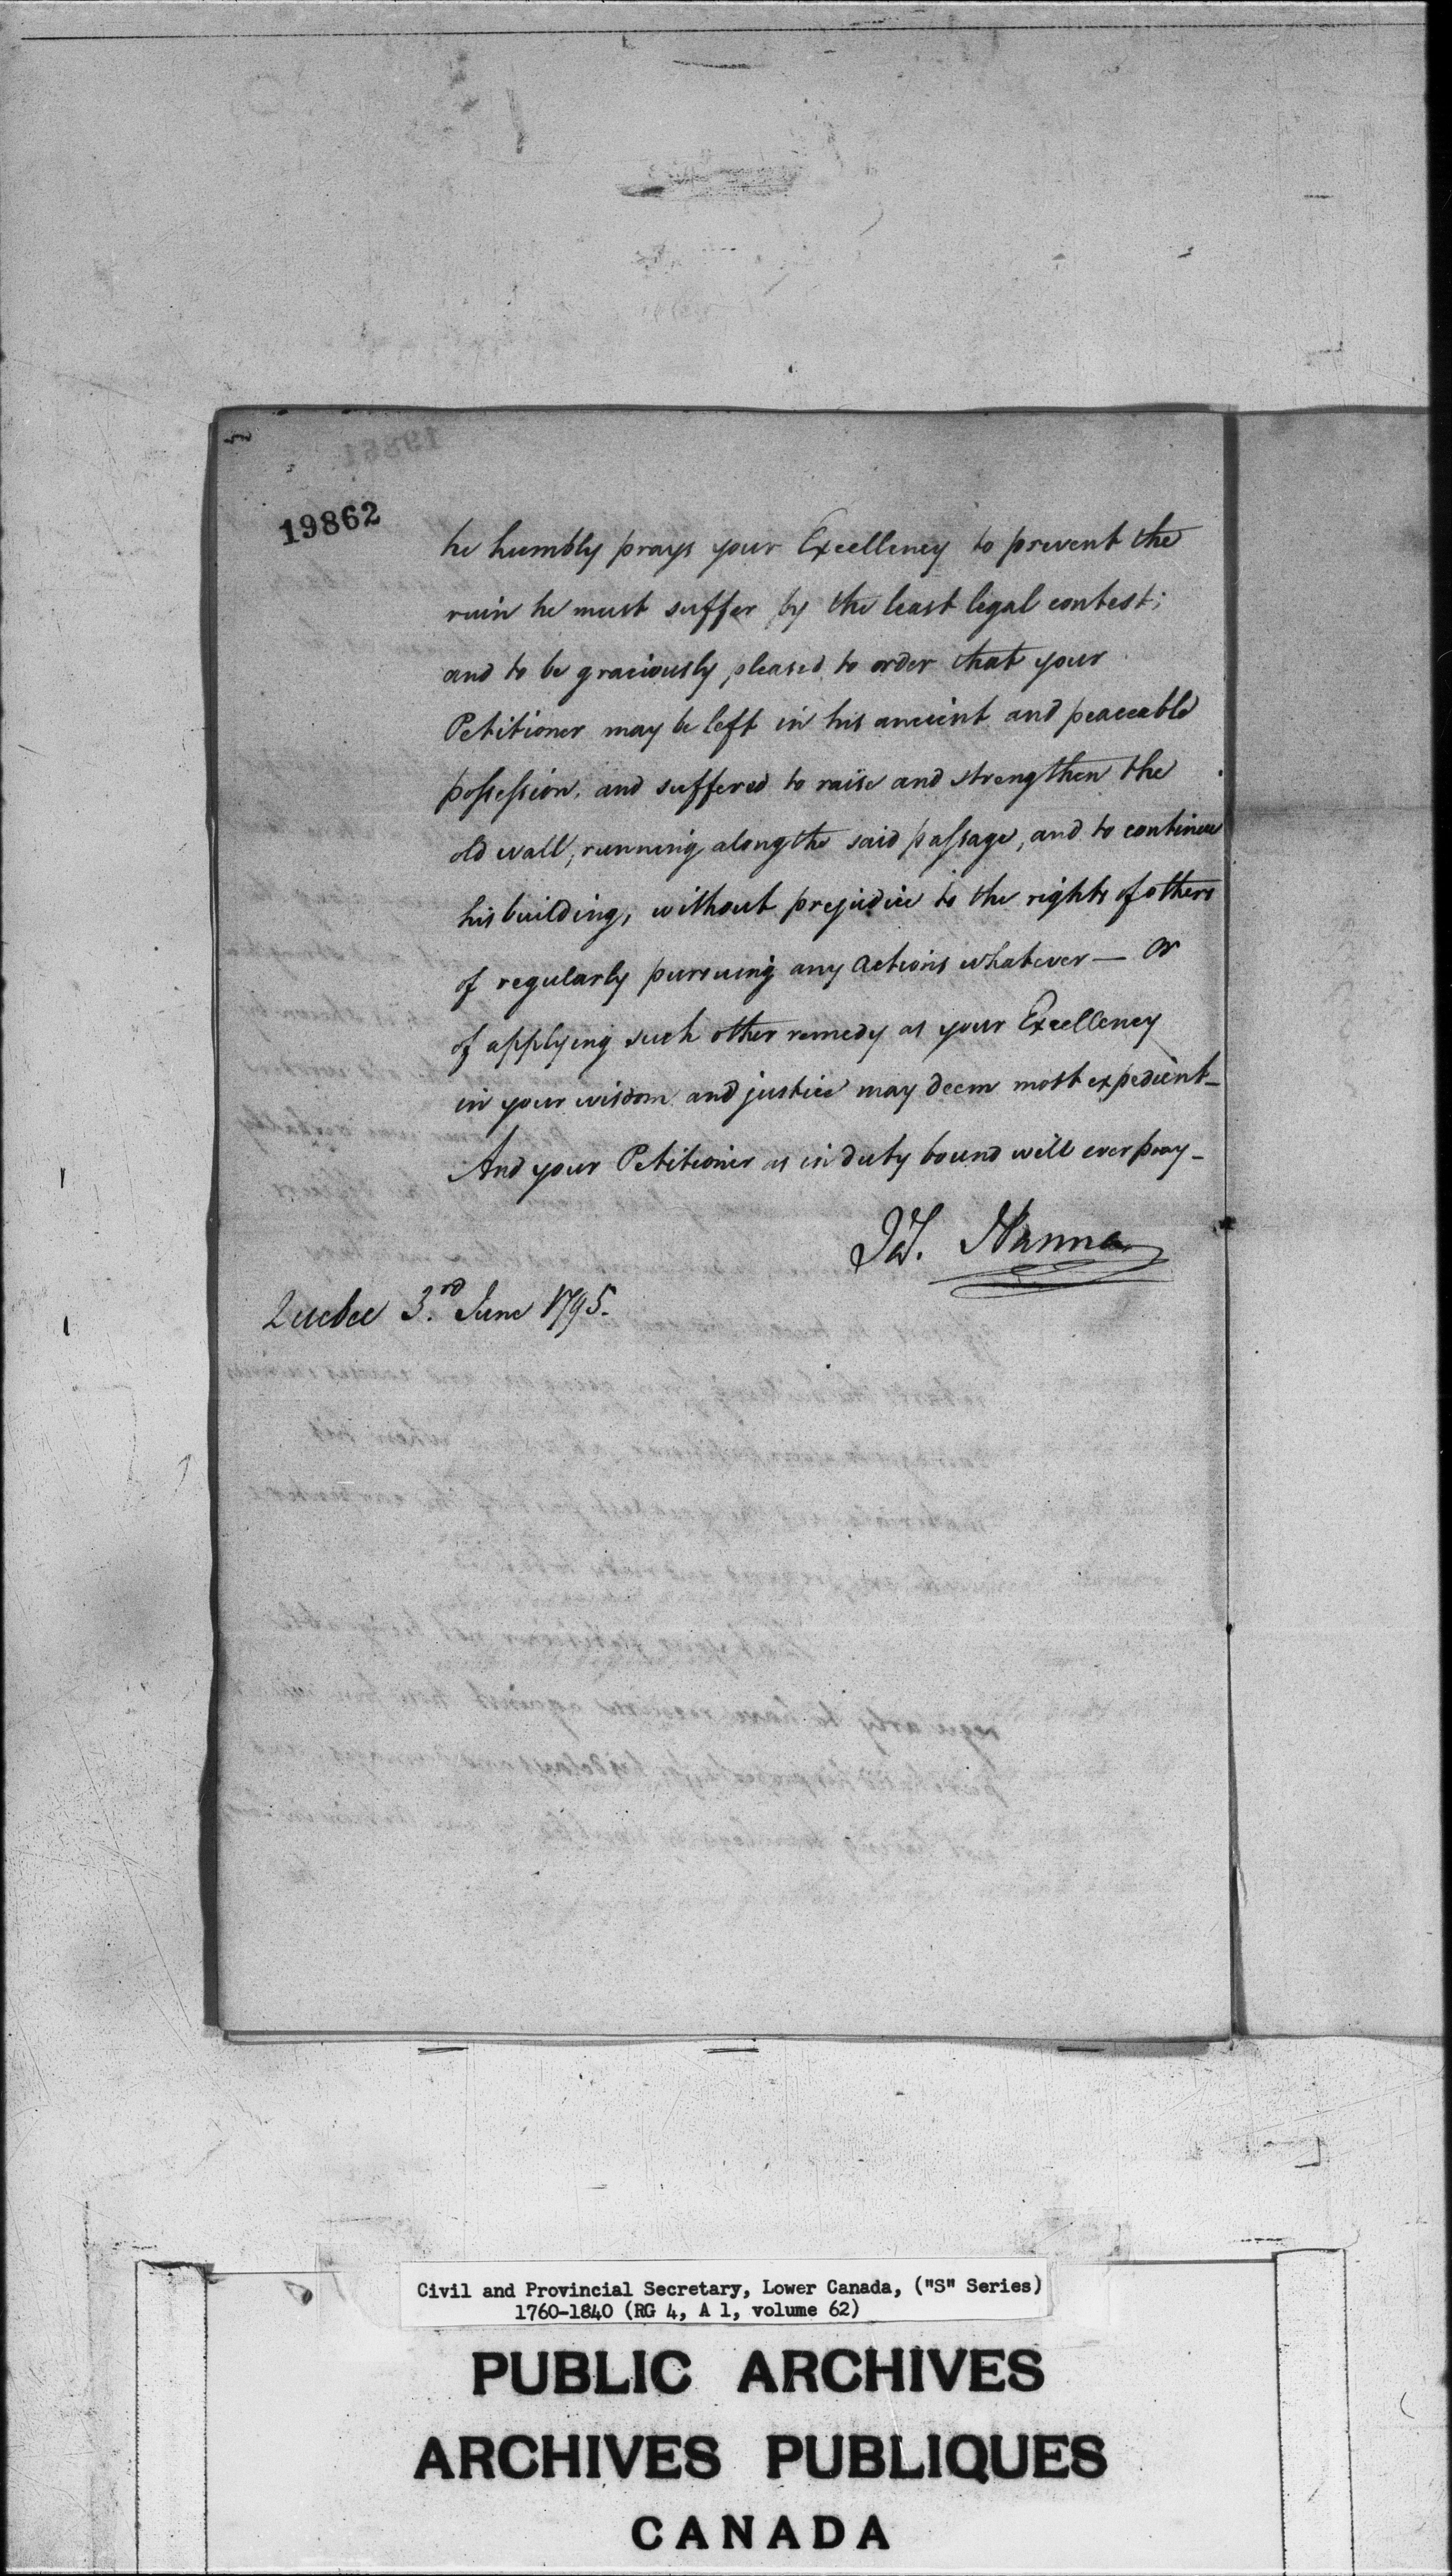 19862
he humbly prays your Excellency to prevent the
ruin he must suffer by the least legal contest;
and to be graciously pleased to order that your
Petitioner may be left in his ancient and peaceable
possession, and suffered to raise and strengthen the
old wall, running along the said passage, and to continue
his building, without prejudice to the rights of others
of regularly pursuing any actions whatever — or
of applying such other remedy as your Excellency
in your wisdom and justice may deem most expedient —
And your Petitioner as in duty bound will ever pray —
Hanna
Quebec 3.rd June 1795.
Civil and Provincial Secretary, Lower Canada, ("S" Series)
1760-1840 (RG 4, A 1, volume 62)
PUBLIC ARCHIVES
ARCHIVES PUBLIQUES
CANADA